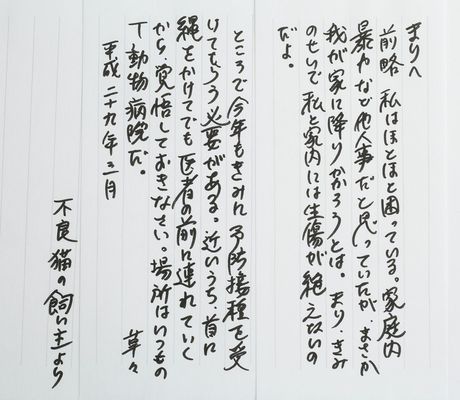 まりへ
前略　私はほとほと困っている。家庭内
暴力など他人事だと思っていたが、まさか
我が家に降りかかろうとは。まり、きみ
のせいで私と家内には生傷が絶えないの
だよ。
ところで今年もきみに予防接種を受
けてもらう必要がある。近いうち、首に
縄をかけてでも医者の前に連れていく
から、覚悟しておきなさい。場所はいつもの
T動物病院だ。
草々
平成二十九年三月
不良猫の飼い主より